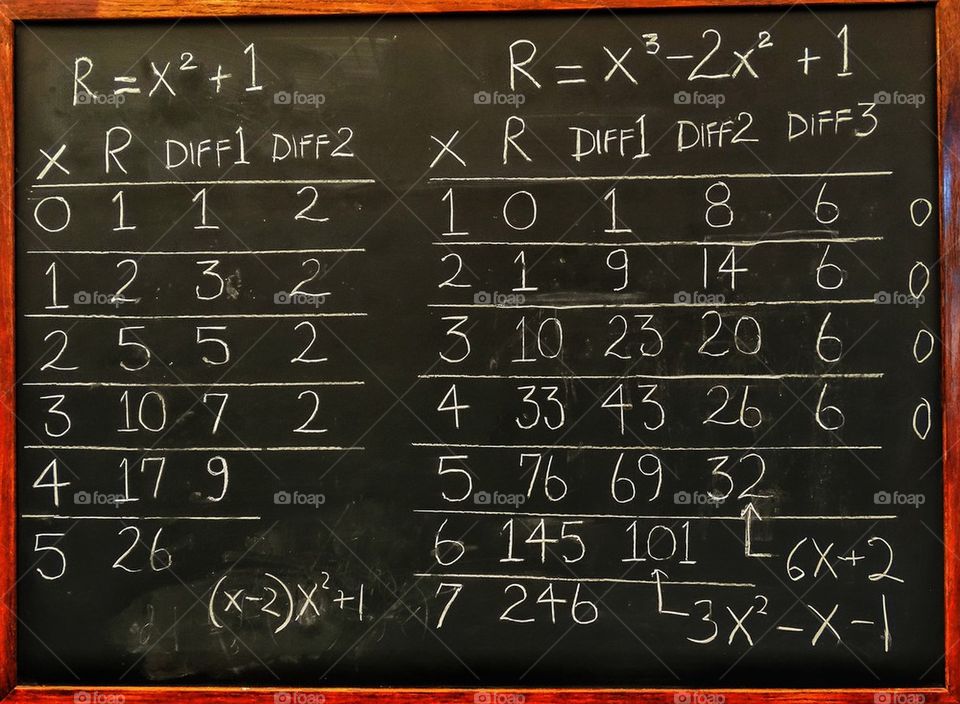 R = x² + 1
X R DIFF1 DIFF2
0 1 1 2
1 2 3 2
2 5 5 2
3 10 7 2
4 17 9
5 26
(x-2)x²+1
R = x³-2x² + 1
X R DIFF1 DIFF2 DIFF3
1 0 1 8 6 0
2 1 9 14 6 0
3 10 23 20 6 0
4 33 43 26 6 0
5 76 69 32
6 145 101
6X+2
7 246
3X²-X-1
foap foap foap foap foap
foap foap foap foap foap
foap foap foap foap foap
foap foap foap foap foap